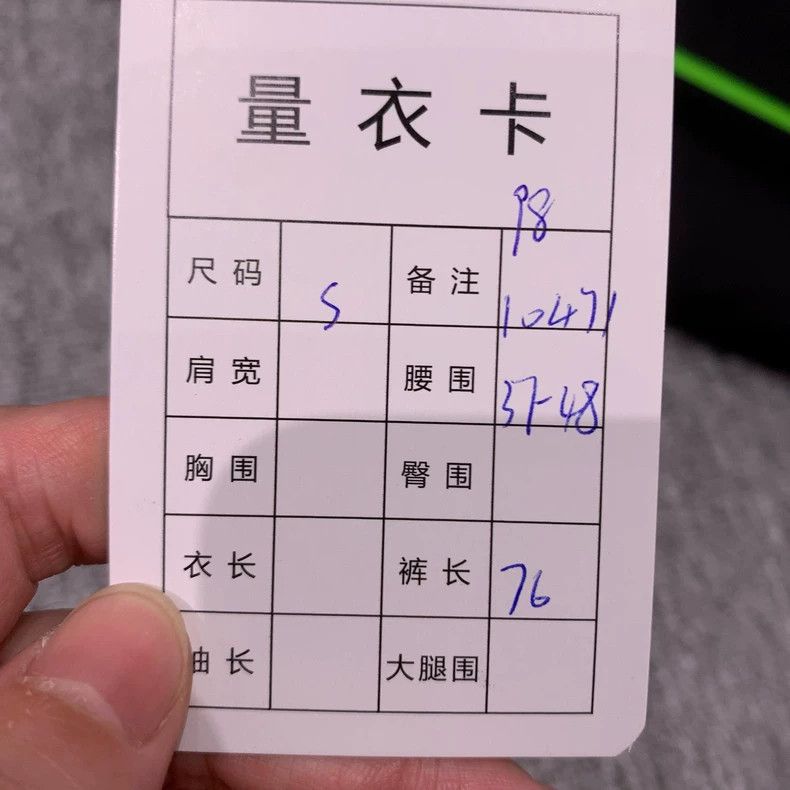 量衣卡
98
尺码 S 备注 10471
肩宽 腰围 37-48
胸围 臀围
衣长 裤长 76
袖长 大腿围